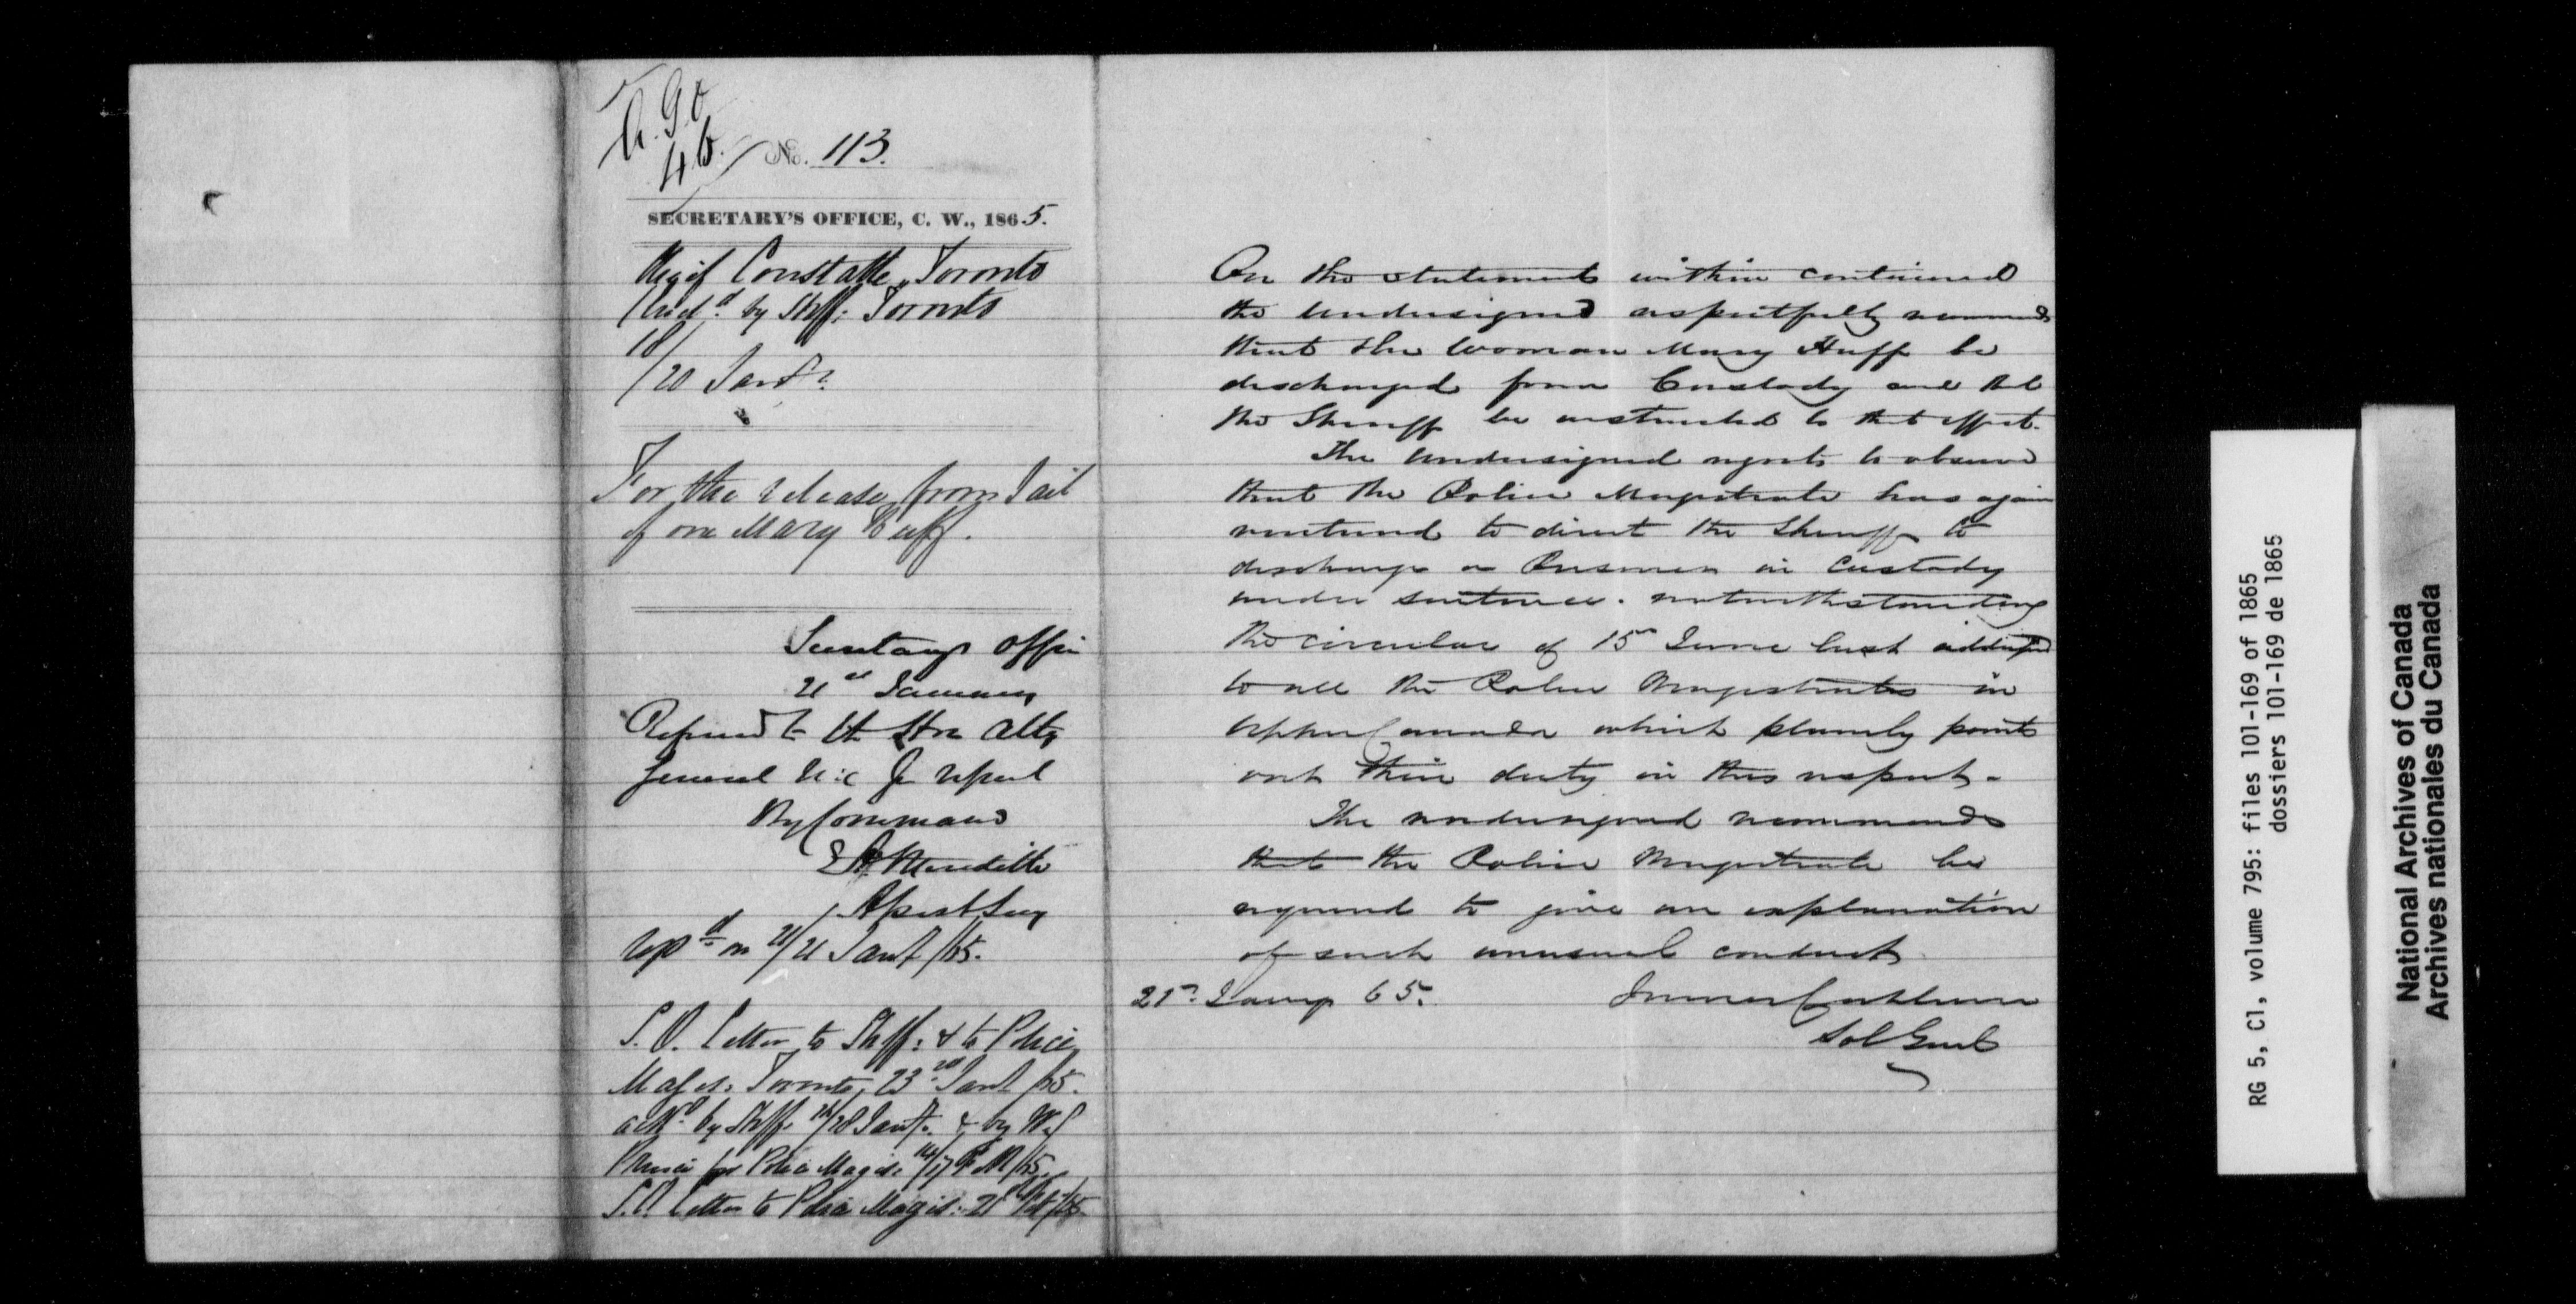 A.G.O
46.
No. 113.
SECRETARY'S OFFICE, C. W., 1865.
Chief Constable, Toronto
by Shff: Toronto
18/
/20 Jany.
For the release from Jail
of one Mary Huff.
Secretary's Office
21st January
Referred to the Hon Atty
General U.C for report
By Command
E A Meredith
Asst Secy
Repd on 21/21 Jany /65.
S.O. Letter to Shff: & to Police
Magis: Toronto, 23rd Jany /65.
ackd by Shff: 26/28 Jany. & by
for Police Magis: 14/17 Feb /65.
S.O. Letter to Police Magis: 21 Feb /65
On the statements within contained
the undersigned respectfully recommends
that the woman Mary Huff be
discharged from Custody and that
the Sheriff be instructed to that effect.
The undersigned regrets to observe
that the Police Magistrate has again
ventured to direct the Sheriff to
discharge a Prisoner in Custody
under sentence. notwithstanding
the circular of 15th June last addressed
to all the Police Magistrates in
Upper Canada which plainly points
out their duty in this respect.
The undersigned recommends
that the Police Magistrate be
required to give an explanation
of such unusual conduct
21st Jany 65. James Cockburn
Sol Genl
RG 5, C1, volume 795: files 101-169 of 1865
dossiers 101-169 de 1865
National Archives of Canada
Archives nationales du Canada